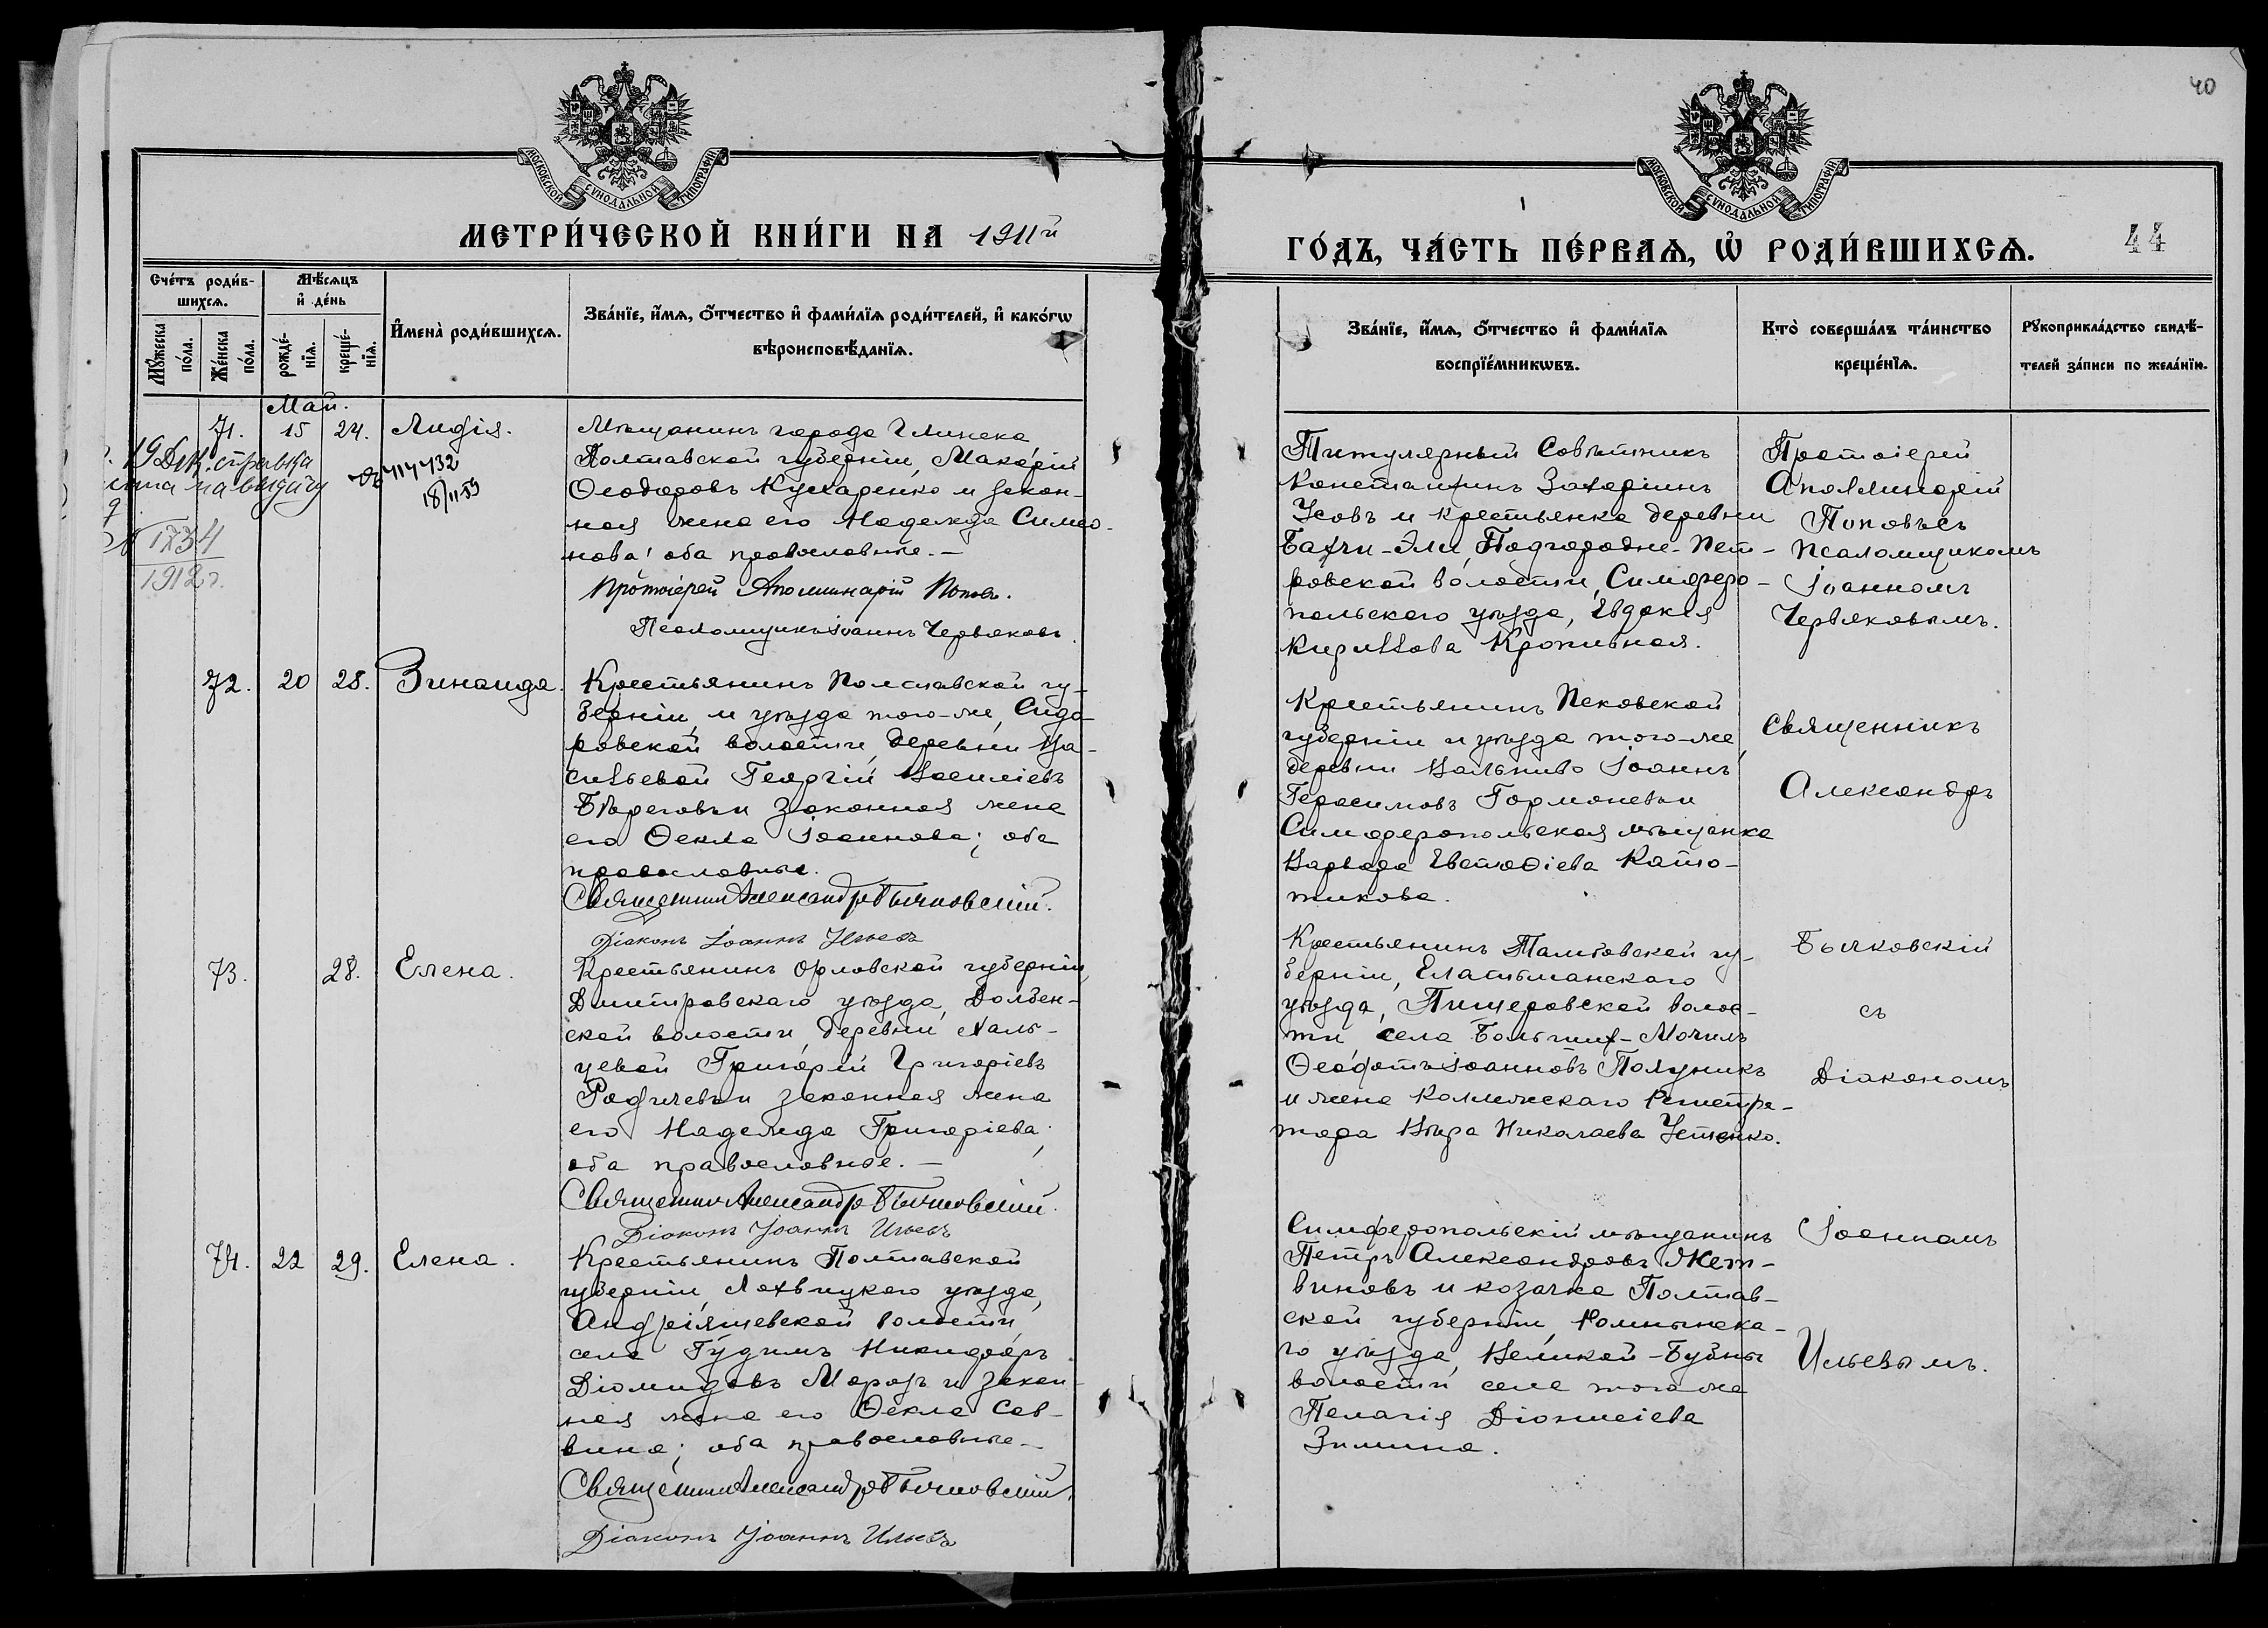 40
МОСКОВСКОЙ СѴНОДАЛЬНОЙ ТИПОГРАФІИ
МОСКОВСКОЙ СѴНОДАЛЬНОЙ ТИПОГРАФІИ
МЕТРИ́ЧЕСКОЙ КНИ́ГИ НА 1911й
ГО́ДЪ, ЧА́СТЬ ПЕ́РВАѦ, Ѡ҆ РОДИ́ВШИХСѦ.
44
Сче́тъ роди́в-
шихсѧ.
Мꙋ́жеска
по́ла.
Же́нска
по́ла.
Мѣ́сѧцъ
и҆ де́нь
рожде́-
нїѧ.
креще́-
нїѧ.
И҆мена̀ роди́вшихсѧ.
Зва́нїе, и҆́мѧ, ѻ҆́тчество и҆ фами́лїѧ роди́телей, и҆ како́гѡ
вѣроисповѣ́данїѧ.
Зва́нїе, и҆́мѧ, ѻ҆́тчество и҆ фами́лїѧ
воспрїе́мникѡвъ.
Кто̀ соверша́лъ та́инство
креще́нїѧ.
Рꙋкоприкла́дство свидѣ́-
телей за́писи по жела́нїю.
Май.
71. 15 24. Лидія.
19 Дек. справка
на выдачу
№ 414432
18/II 59
1834
1912 г.
Мѣщанинъ города Глинска,
Полтавской губерніи, Макарій
Ѳеодоровъ Кухаренко и закон-
ная жена его Надежда Симео-
нова; оба православные.—
Протоіерей Аполлинарій Поповъ.
Псаломщикъ Іоаннъ Червяковъ.
Титулярный Совѣтникъ
Константинъ Захаріинъ
Усовъ и крестьянка деревни
Бахчи-Эли, Подгородне-Пет-
ровской волости, Симферо-
польскаго уѣзда, Евдокія
Кириллова Кропивная.
Протоіерей
Аполлинарій
Поповъ съ
псаломщикомъ
Іоанномъ
Червяковымъ.
72. 20 28. Зинаида.
Крестьянинъ Полтавской гу-
берніи, и уѣзда того-же, Сидо-
ровской волости, деревни Ва-
сильевой Георгій Василіевъ
Бѣреговъ и законная жена
его Ѳекла Іоаннова; оба
православные.
Священникъ Александръ Бычковскій.
Діаконъ Іоаннъ Ильевъ
Крестьянинъ Псковской
губерніи и уѣзда того-же,
деревни Іоаннъ
Герасимовъ и
Симферопольская мѣщанка
Варвара Евтѳіева
никова.
Священникъ
Александръ
Бычковскій
съ
Діакономъ
Іоанномъ
Ильевымъ.
73. 28. Елена.
Крестьянинъ Орловской губерніи,
Дмитровскаго уѣзда, Долбен-
ской волости, деревни Халь-
чевой Григорій Григоріевъ
Радичевъ и законная жена
его Надежда Григоріева;
оба православные.—
Священникъ Александръ Бычковскій.
Діаконъ Іоаннъ Ильевъ
Крестьянинъ Тамбовской гу-
берніи, Елатьманскаго
уѣзда, Пищеровской волос-
ти села Большихъ-Мочилъ
Ѳеофотъ Іоанновъ Полуникъ
и жена Коллежскаго Регистра-
тора Вѣра Николаева Устенко.
74. 22 29. Елена.
Крестьянинъ Полтавской
губерніи, Лохвицкаго уѣзда,
Андріяшевской волости,
села Гудимъ Никифоръ
Діомидовъ Морозъ и закон-
ная жена его Ѳекла Сав-
вина; оба православные.—
Священникъ Александръ Бычковскій.
Діаконъ Іоаннъ Ильевъ
Симферопольскій мѣщанинъ
Петръ Александровъ Жет-
виновъ и козачка Полтав-
ской губерніи, Ромнынска-
го уѣзда, Великой-Бубны
волости села того-же
Пелагія Діонисіева
Зимина.